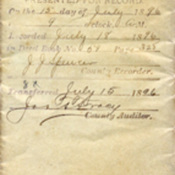 PRESENTED FOR RECORD
on the 15 day of July 1896
at 9 o'clock A.M.
Recorded July 18 1896
in Deed Book No 58 Page 325
J. J. Spencer
County Recorder.
Transferred July 15 1896
Jas
County Auditor.